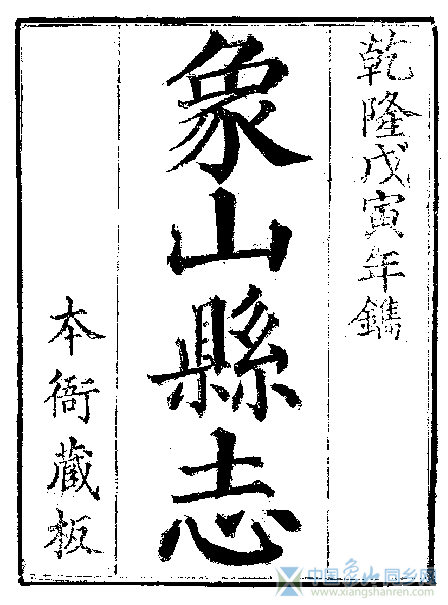 乾隆戊寅年鐫
象山縣志
本衙藏板
中国象山同乡网
www.xiangshanren.com